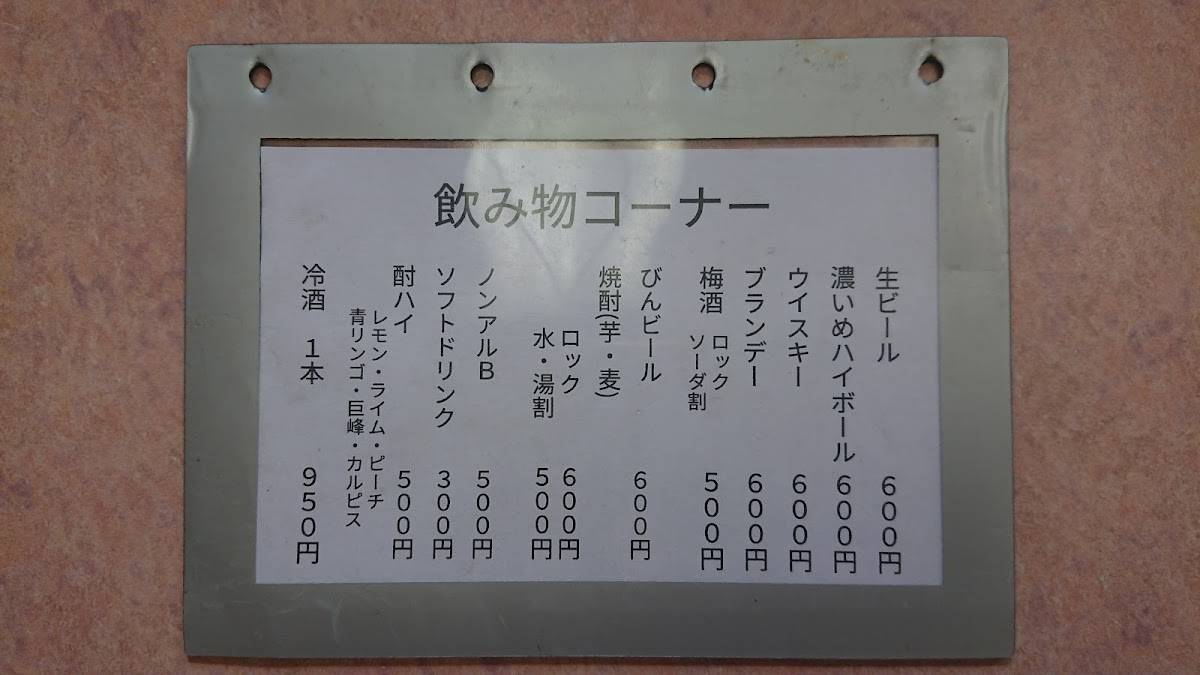 飲み物コーナー
生ビール 600円
濃いめハイボール 600円
ウイスキー 600円
ブランデー 600円
梅酒 ロック
ソーダ割 500円
びんビール 600円
焼酎(芋・麦)
ロック 600円
水・湯割 500円
ノンアルB 500円
ソフトドリンク 300円
酎ハイ 500円
レモン・ライム・ピーチ
青リンゴ・巨峰・カルピス
冷酒 1本 950円